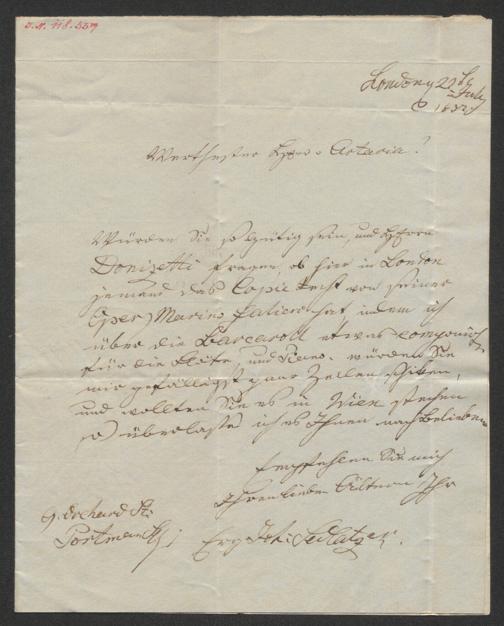 J.N. 118.559
London 29 July
Werthester Herr Artaria!
Würden Sie so gütig sein, und Herrn
Donizetti fragen, ob hier in London
jemand das Copie Recht von seiner
Oper Marino Falliero hat, indem ich
über die Barcaroll etwas componirt
für die Flöte, und Piano. würden Sie
mir gefälligst paar Zeilen schicken,
und wollten Sie es in Wien stechen
so überlasse ich es Ihnen nach Belieben
Empfehlen Sie mich
Ihren lieben Ältern Ihr
9. Orchard St.
Portman Sq. Erg Joh: Sedlatzek.